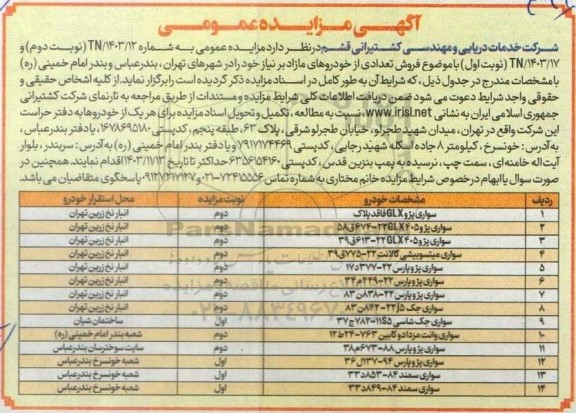 آگهی مزایده عمومی
شرکت خدمات دریایی و مهندسی کشتیرانی قشم در نظر دارد مزایده عمومی به شماره TN/۱۴۰۳/۱۲ (نوبت دوم) و
TN/۱۴۰۳/۱۷ (نوبت اول) با موضوع فروش تعدادی از خودروهای مازاد بر نیاز خود را در شهرهای تهران، بندرعباس و بندر امام خمینی (ره)
با مشخصات مندرج در جدول ذیل، که شرایط آن به طور کامل در اسناد مزایده ذکر گردیده است را برگزار نماید. از کلیه اشخاص حقیقی و
حقوقی واجد شرایط دعوت می شود ضمن دریافت اطلاعات کلی شرایط مزایده و مستندات از طریق مراجعه به تارنمای شرکت کشتیرانی
جمهوری اسلامی ایران به نشانی www.irisl.net نسبت به مطالعه، تکمیل و تحویل اسناد مزایده برای هر یک از خودروها به دفتر حراست
این شرکت واقع در تهران، میدان شهید طجرلو، خیابان طجرلو شرقی، پلاک ۶۳، طبقه پنجم، کدپستی ۱۶۷۸۶۹۵۱۸۰، یا دفتر بندرعباس،
به آدرس: خونسرخ، کیلومتر ۸ جاده اسکله شهید رجایی، کدپستی ۷۹۱۷۱۷۴۴۶۹ و یا دفتر بندر امام خمینی (ره) به آدرس: سربندر، بلوار
آیت اله خامنه ای، سمت چپ، نرسیده به پمپ بنزین قدس، کدپستی ۶۳۵۶۱۵۴۱۶۰ حداکثر تا تاریخ ۱۴۰۳/۱۱/۱۳ اقدام نمایند. همچنین در
صورت سوال یا ابهام در خصوص شرایط مزایده خانم مختاری به شماره تماس ۷۲۴۱۵۵۵۶-۰۲۱ و ۰۹۱۲۷۲۱۷۱۲۷ پاسخگوی متقاضیان می باشد.
ردیف مشخصات خودرو نوبت مزایده محل استقرار خودرو
۱ سواری پژو GLX فاقد پلاک دوم انبار نخ زرین تهران
۲ سواری پژو ۴۰۵ GLX ۲۲-۶۷۴ق۵۸ دوم انبار نخ زرین تهران
۳ سواری پژو ۴۰۵ GLX ۲۲-۶۱۳ق۳۹ دوم انبار نخ زرین تهران
۴ سواری میتسوبیشی گالانت ۲۲-۷۷۵ق۳۹ دوم انبار نخ زرین تهران
۵ سواری پژو پارس ۲۲-۳۷۷د۱۷ دوم انبار نخ زرین تهران
۶ سواری پژو پارس ۲۲-۴۲۹م۳۴ دوم انبار نخ زرین تهران
۷ سواری پژو پارس ۲۲-۸۳۸ن۸۳ دوم انبار نخ زرین تهران
۸ سواری جک J5 ۲۲-۸۴۲ن۸۳ دوم انبار نخ زرین تهران
۹ سواری جک شاسی S5 ۱۱-۷۸۲ج۳۷ اول ساختمان شیان
۱۰ سواری وانت مزدا دو کابین ۷۶۳-۲۴ط۱۲ دوم شعبه بندر امام خمینی (ره)
۱۱ سواری پژو پارس ۸۸-۶۷۳م۳۸ دوم سایت سوخترسان بندرعباس
۱۲ سواری پژو پارس ۹۴-۱۳۷ل۳۶ اول شعبه خونسرخ بندرعباس
۱۳ سواری سمند ۸۴-۸۵۳د۳۳ اول شعبه خونسرخ بندرعباس
۱۴ سواری سمند ۸۴-۸۴۹د۳۳ اول شعبه خونسرخ بندرعباس